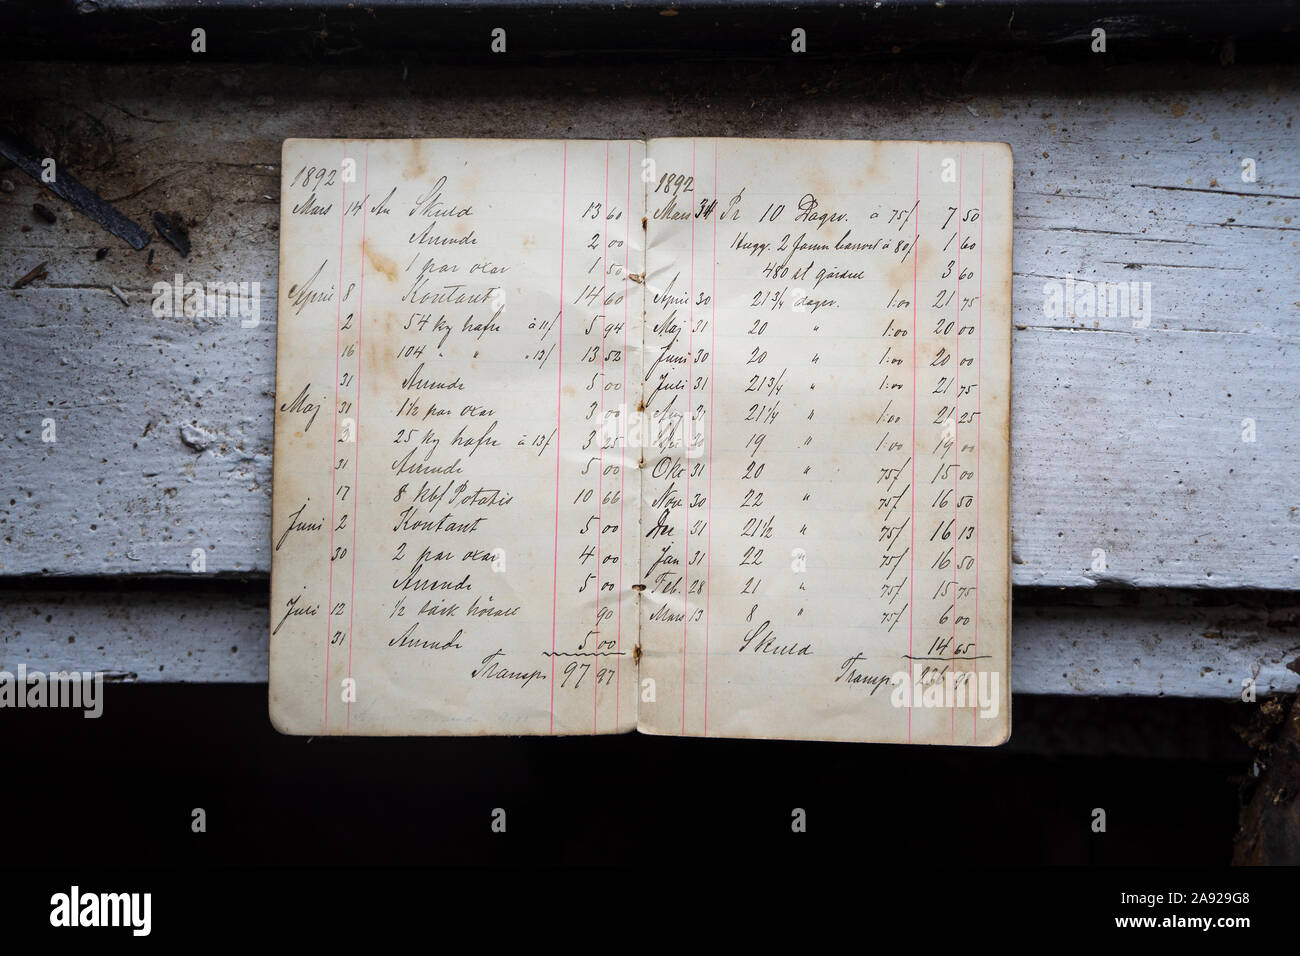 1892
Mars 14 An Skuld 13 60
Arende 2 00
1 par oxar 1 50
April 8 Kontant 14 60
2 54 kg hafre à 11/ 5 94
16 104 " " " 13/ 13 52
31 Arende 5 00
Maj 31 1 1/2 par oxar 3 00
2 25 kg hafre à 13/ 3 25
31 Arende 5 00
17 8 kbf Potatis 10 66
Juni 2 Kontant 5 00
30 2 par oxar 4 00
Arende 5 00
Juli 12 1/2 90
31 Arende 5 00
Transp. 97 97
1892
Mars 31 Pr 10 Dagsv. à 75/ 7 50
Hugg. 2 famn à 80/ 1 60
480 st 3 60
April 30 21 3/4 dagsv. 1:00 21 75
Maj 31 20 " 1:00 20 00
Juni 30 20 " 1:00 20 00
Juli 31 21 3/4 " 1:00 21 75
Aug 31 21 1/4 " 1:00 21 25
30 19 " 1:00 19 00
Okt 31 20 " 75/ 15 00
Nov 30 22 " 75/ 16 50
De 31 21 1/2 " 75/ 16 13
Jan 31 22 " 75/ 16 50
Feb. 28 21 " 75/ 15 75
Mars 13 8 " 75/ 6 00
Skuld 14 65
Transp. 236
alamy
Image ID: 2A929G8
www.alamy.com